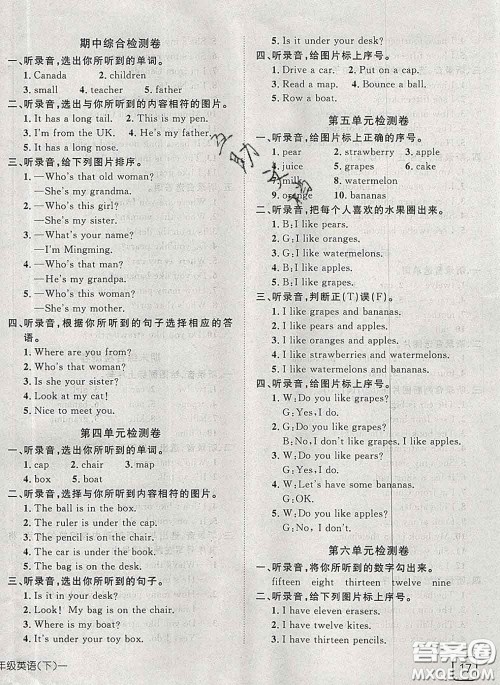 期中综合检测卷
一、听录音,选出你所听到的单词。
1. Canada  2. children
3. small  4. teacher  5. father
二、听录音,选出与你所听到的内容相符的图片。
1. It has a long tail.  2. This is my pen.
3. I'm from the UK.  4. He's my father.
5. It has a long nose.
三、听录音,给下列图片排序。
1. —Who's that old woman?
—She's my grandma.
2. —Who's that girl?
—She's my sister.
3. —Who's that boy?
—I'm Mingming.
4. —Who's that man?
—He's my grandpa.
5. —Who's this woman?
—She's my mother.
四、听录音,根据你所听到的句子选择相应的答语。
1. Where are you from?
2. Who's that boy?
3. Is she your sister?
4. Is he your father?
5. Nice to meet you.
第四单元检测卷
一、听录音,选出你所听到的单词。
1. cap  2. chair  3. map
4. box  5. boat
二、听录音,选择与你所听到内容相符的图片。
1. The ball is in the box.
2. The ruler is under the cap.
3. The pencil is on the chair.
4. The car is under the chair.
5. The bag is under the desk.
三、听录音,选出你所听到的句子。
1. Is it in your desk?
2. Look! My bag is on the chair.
3. Where is my car?
4. Have a good time!
年级英语(下)一
5. Is it under your desk?
四、听录音,给图片标上序号。
1. Drive a car.  2. Put on a cap.
3. Read a map.  4. Bounce a ball.
5. Row a boat.
第五单元检测卷
一、听录音,给图片标上正确的序号。
1. pear  2. strawberry  3. apple
4. juice  5. grapes  6. cake
7. milk  8. watermelon
9. orange  10. bananas
二、听录音,把每个人喜欢的水果圈出来。
1. B:I like pears.
2. G:I like oranges.
3. G:I like watermelons.
4. B:I like apples.
5. G:I like grapes.
三、听录音,判断正(T)误(F)。
1. I like grapes and bananas.
2. I like pears and apples.
3. I like strawberries and watermelons.
4. I like oranges and grapes.
5. I like watermelons and bananas.
四、听录音,给图片标上序号。
1. W:Do you like grapes?
G:Yes,I do.
2. W:Do you like bananas?
G:No,I don't.
3. W:Do you like apples?
G:Yes,I do.
4. W:Let's have some bananas.
G:OK!
5. W:Do you like grapes?
G:No,I don't.
第六单元检测卷
一、听录音,将你所听到的数字勾出来。
fifteen  eight  thirteen  twelve  nine
二、听录音,给下列图片标上序号。
1. I have eleven erasers.
2. I have twelve kites.
3. I have thirteen pencils.
17
互助文档
答案圈
MXQE.COM